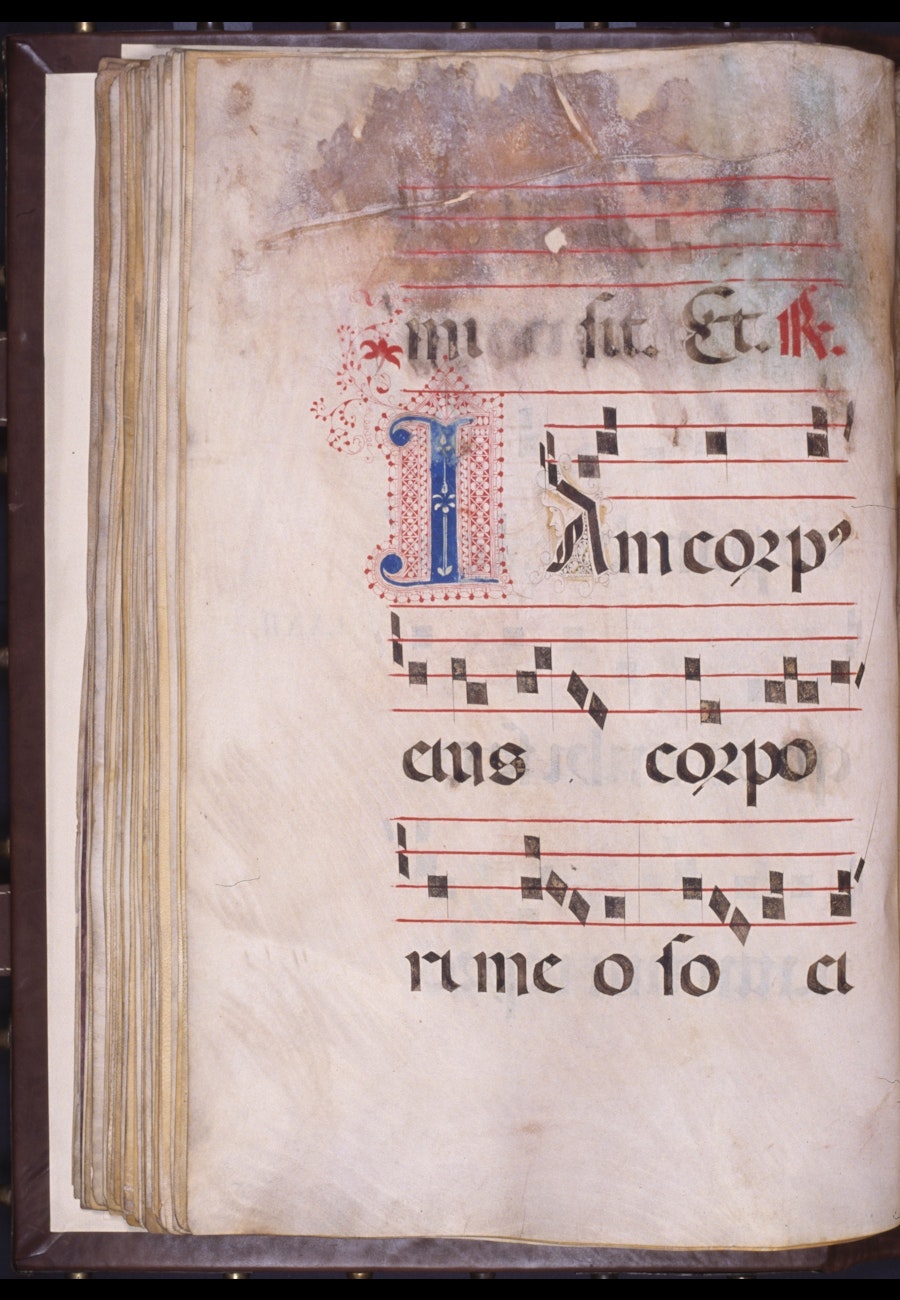 sit. Et. ℟.
IAm corpꝰ
eius corpo
ri meo soci